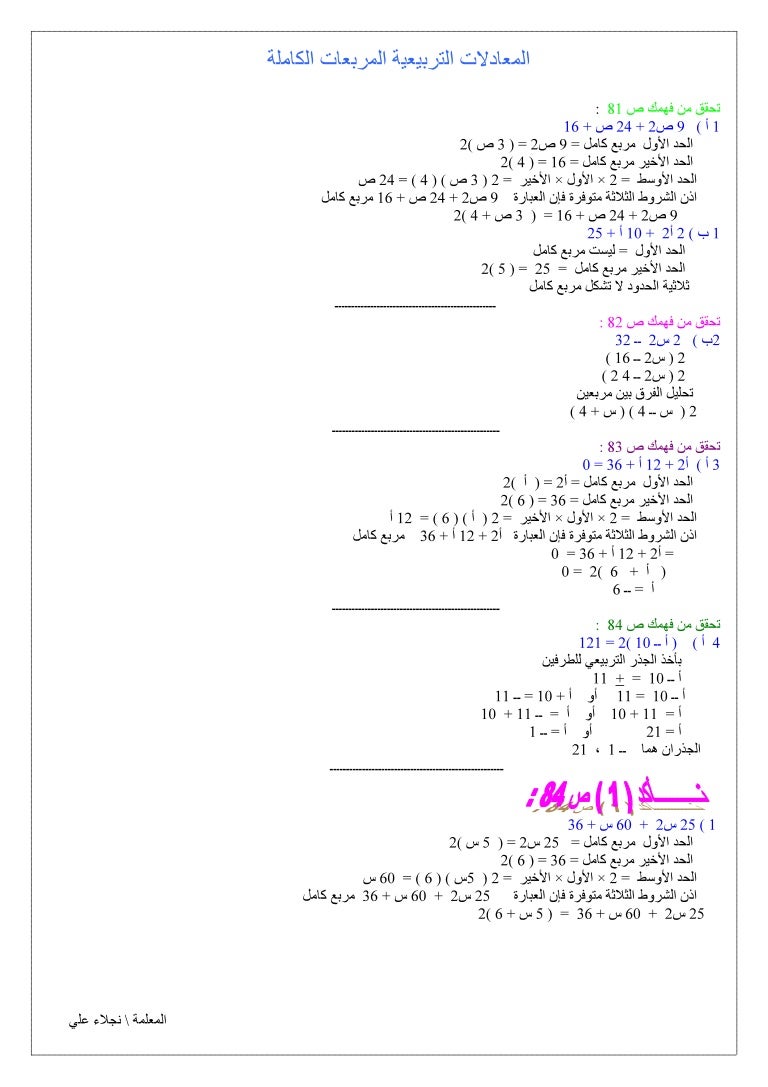 المعادلات التربيعية المربعات الكاملة
تحقق من فهمك ص 81 :
1 أ ) 9 ص2 + 24 ص + 16
الحد الأول مربع كامل = 9 ص2 = ( 3 ص )2
الحد الأخير مربع كامل = 16 = ( 4 )2
الحد الأوسط = 2 × الأول × الأخير = 2 ( 3 ص ) ( 4 ) = 24 ص
اذن الشروط الثلاثة متوفرة فإن العبارة 9 ص2 + 24 ص + 16 مربع كامل
9 ص2 + 24 ص + 16 = ( 3 ص + 4 )2
1 ب ) 2 أ2 + 10 أ + 25
الحد الأول = ليست مربع كامل
الحد الأخير مربع كامل = 25 = ( 5 )2
ثلاثية الحدود لا تشكل مربع كامل
تحقق من فهمك ص 82 :
2ب ) 2 س2 – 32
2 ( س2 – 16 )
2 ( س2 – 4 2 )
تحليل الفرق بين مربعين
2 ( س – 4 ) ( س + 4 )
تحقق من فهمك ص 83 :
3 أ ) أ2 + 12 أ + 36 = 0
الحد الأول مربع كامل = أ2 = ( أ )2
الحد الأخير مربع كامل = 36 = ( 6 )2
الحد الأوسط = 2 × الأول × الأخير = 2 ( أ ) ( 6 ) = 12 أ
اذن الشروط الثلاثة متوفرة فإن العبارة أ2 + 12 أ + 36 مربع كامل
= أ2 + 12 أ + 36 = 0
( أ + 6 )2 = 0
أ = – 6
تحقق من فهمك ص 84 :
4 أ ) ( أ – 10 )2 = 121
بأخذ الجذر التربيعي للطرفين
أ – 10 = ± 11
أ – 10 = 11 أو أ + 10 = – 11
أ = 11 + 10 أو أ = – 11 + 10
أ = 21 أو أ = – 1
الجذران هما – 1 ، 21
تــــأكد ( 1 ) ص 84 :
1 ) 25 س2 + 60 س + 36
الحد الأول مربع كامل = 25 س2 = ( 5 س )2
الحد الأخير مربع كامل = 36 = ( 6 )2
الحد الأوسط = 2 × الأول × الأخير = 2 ( 5س ) ( 6 ) = 60 س
اذن الشروط الثلاثة متوفرة فإن العبارة 25 س2 + 60 س + 36 مربع كامل
25 س2 + 60 س + 36 = ( 5 س + 6 )2
المعلمة \ نجلاء علي